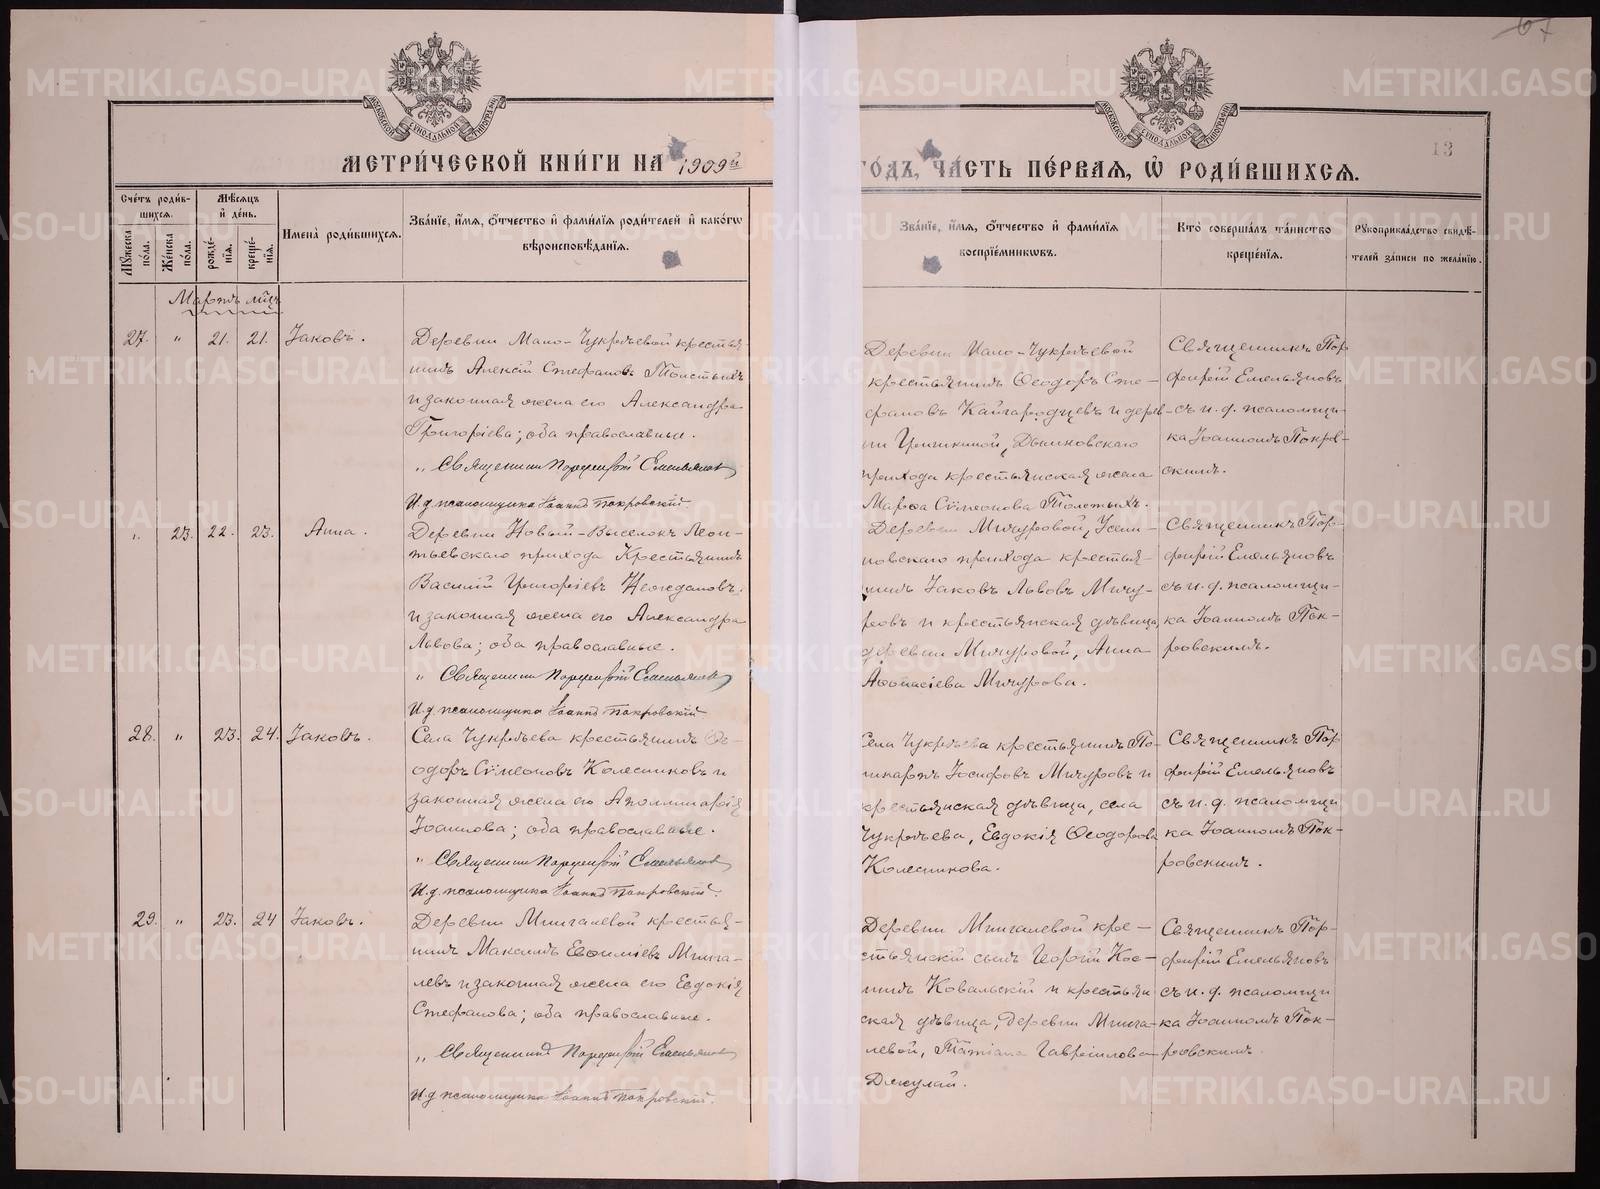 МЕТРИ́ЧЕСКОЙ КНИ́ГИ НА 1909й
ГО́ДЪ, ЧА́СТЬ ПЕ́РВАЯ, Ѡ҆ РОДИ́ВШИХСЯ.
13
МОСКОВСКОЙ СѴНОДАЛЬНОЙ ТИПОГРАФІИ
МОСКОВСКОЙ СѴНОДАЛЬНОЙ ТИПОГРАФІИ
Сче́тъ роди́в-
шихся.
Мѣ́сяцъ
и҆ де́нь.
Мꙋ́жеска по́ла.
Же́нска по́ла.
рожде́-
нїя.
креще́-
нїя.
И҆мена̀ роди́вшихся.
Зва́нїе, и҆́мя, ѻ҆́тчество и҆ фами́лїя роди́телей и҆ како́гѡ
вѣроисповѣ́данїя.
Зва́нїе, и҆́мя, ѻ҆́тчество и҆ фами́лїя
воспрїе́мникѡвъ.
Кто̀ соверша́лъ та́инство
креще́нїя.
Рꙋкоприкла́дство свидѣ́-
телей за́писи по жела́нїю.
Мартъ м҃цъ
27. " 21. 21. Іаковъ.
Деревни Мало-Чукрѣевой крестья-
нинъ Алексій Стефановъ Толстыхъ
и законная жена его Александра
Григоріева; оба православные.
" Священникъ Порфирій Емельяновъ
И.д. псаломщика Іоаннъ Покровскій.
Деревни Мало-Чукрѣевой
крестьянинъ Ѳеодоръ Сте-
фановъ Кайгародцевъ и дерев-
ни Гришкиной, Дванковскаго
прихода крестьянская жена
Марѳа Сѵмеонова Толстыхъ.
Священникъ Пор
фирій Емельяновъ
съ и.д. псаломщи-
ка Іоанномъ Покров-
скимъ.
" 23. 22. 23. Анна.
Деревни Новый-Выселокъ Леон-
тьевскаго прихода Крестьянинъ
Василій Григоріевъ Неждановъ
и законная жена его Александра
Львова; оба православные.
" Священникъ Порфирій Емельяновъ
И.д. псаломщика Іоаннъ Покровскій
Деревни Мичуровой, Усени-
новскаго прихода крестья-
нинъ Іаковъ Львовъ Мичу-
ровъ и крестьянская дѣвица,
деревни Мичуровой, Анна
Аѳонасіева Мичурова.
Священникъ Пор-
фирій Емельяновъ
съ и.д. псаломщи-
ка Іоанномъ Пок-
ровскимъ.
28. " 23. 24. Іаковъ.
Села Чукрѣева крестьянинъ Ѳе-
одоръ Сѵмеоновъ Колесниковъ и
законная жена его Аполлинарія
Іоаннова; оба православные.
" Священникъ Порфирій Емельяновъ
И.д. псаломщика Іоаннъ Покровскій.
Села Чукрѣева крестьянинъ По-
ликарпъ Іосифовъ Мичуровъ и
крестьянская дѣвица, села
Чукрѣева, Евдокія Ѳеодорова
Колесникова.
Священникъ Пор
фирій Емельяновъ
съ и.д. псаломщи
ка Іоанномъ Пок-
ровскимъ.
29. " 23. 24 Іаковъ.
Деревни Мингалевой крестья-
нинъ Максимъ Евѳиміевъ Минга-
левъ и законная жена его Евдокія
Стефанова; оба православные.
" Священникъ Порфирій Емельяновъ
И.д. псаломщика Іоаннъ Покровскій.
Деревни Мингалевой кре-
стьянскій сынъ Георгій Кос-
минъ Ковальскій и крестьян
ская дѣвица, деревни Минга-
левой, Татіана Гавріилова
Джулай.
Священникъ Пор-
фирій Емельяновъ
съ и.д. псаломщи
ка Іоанномъ Пок-
ровскимъ.
METRIKI.GASO-URAL.RU